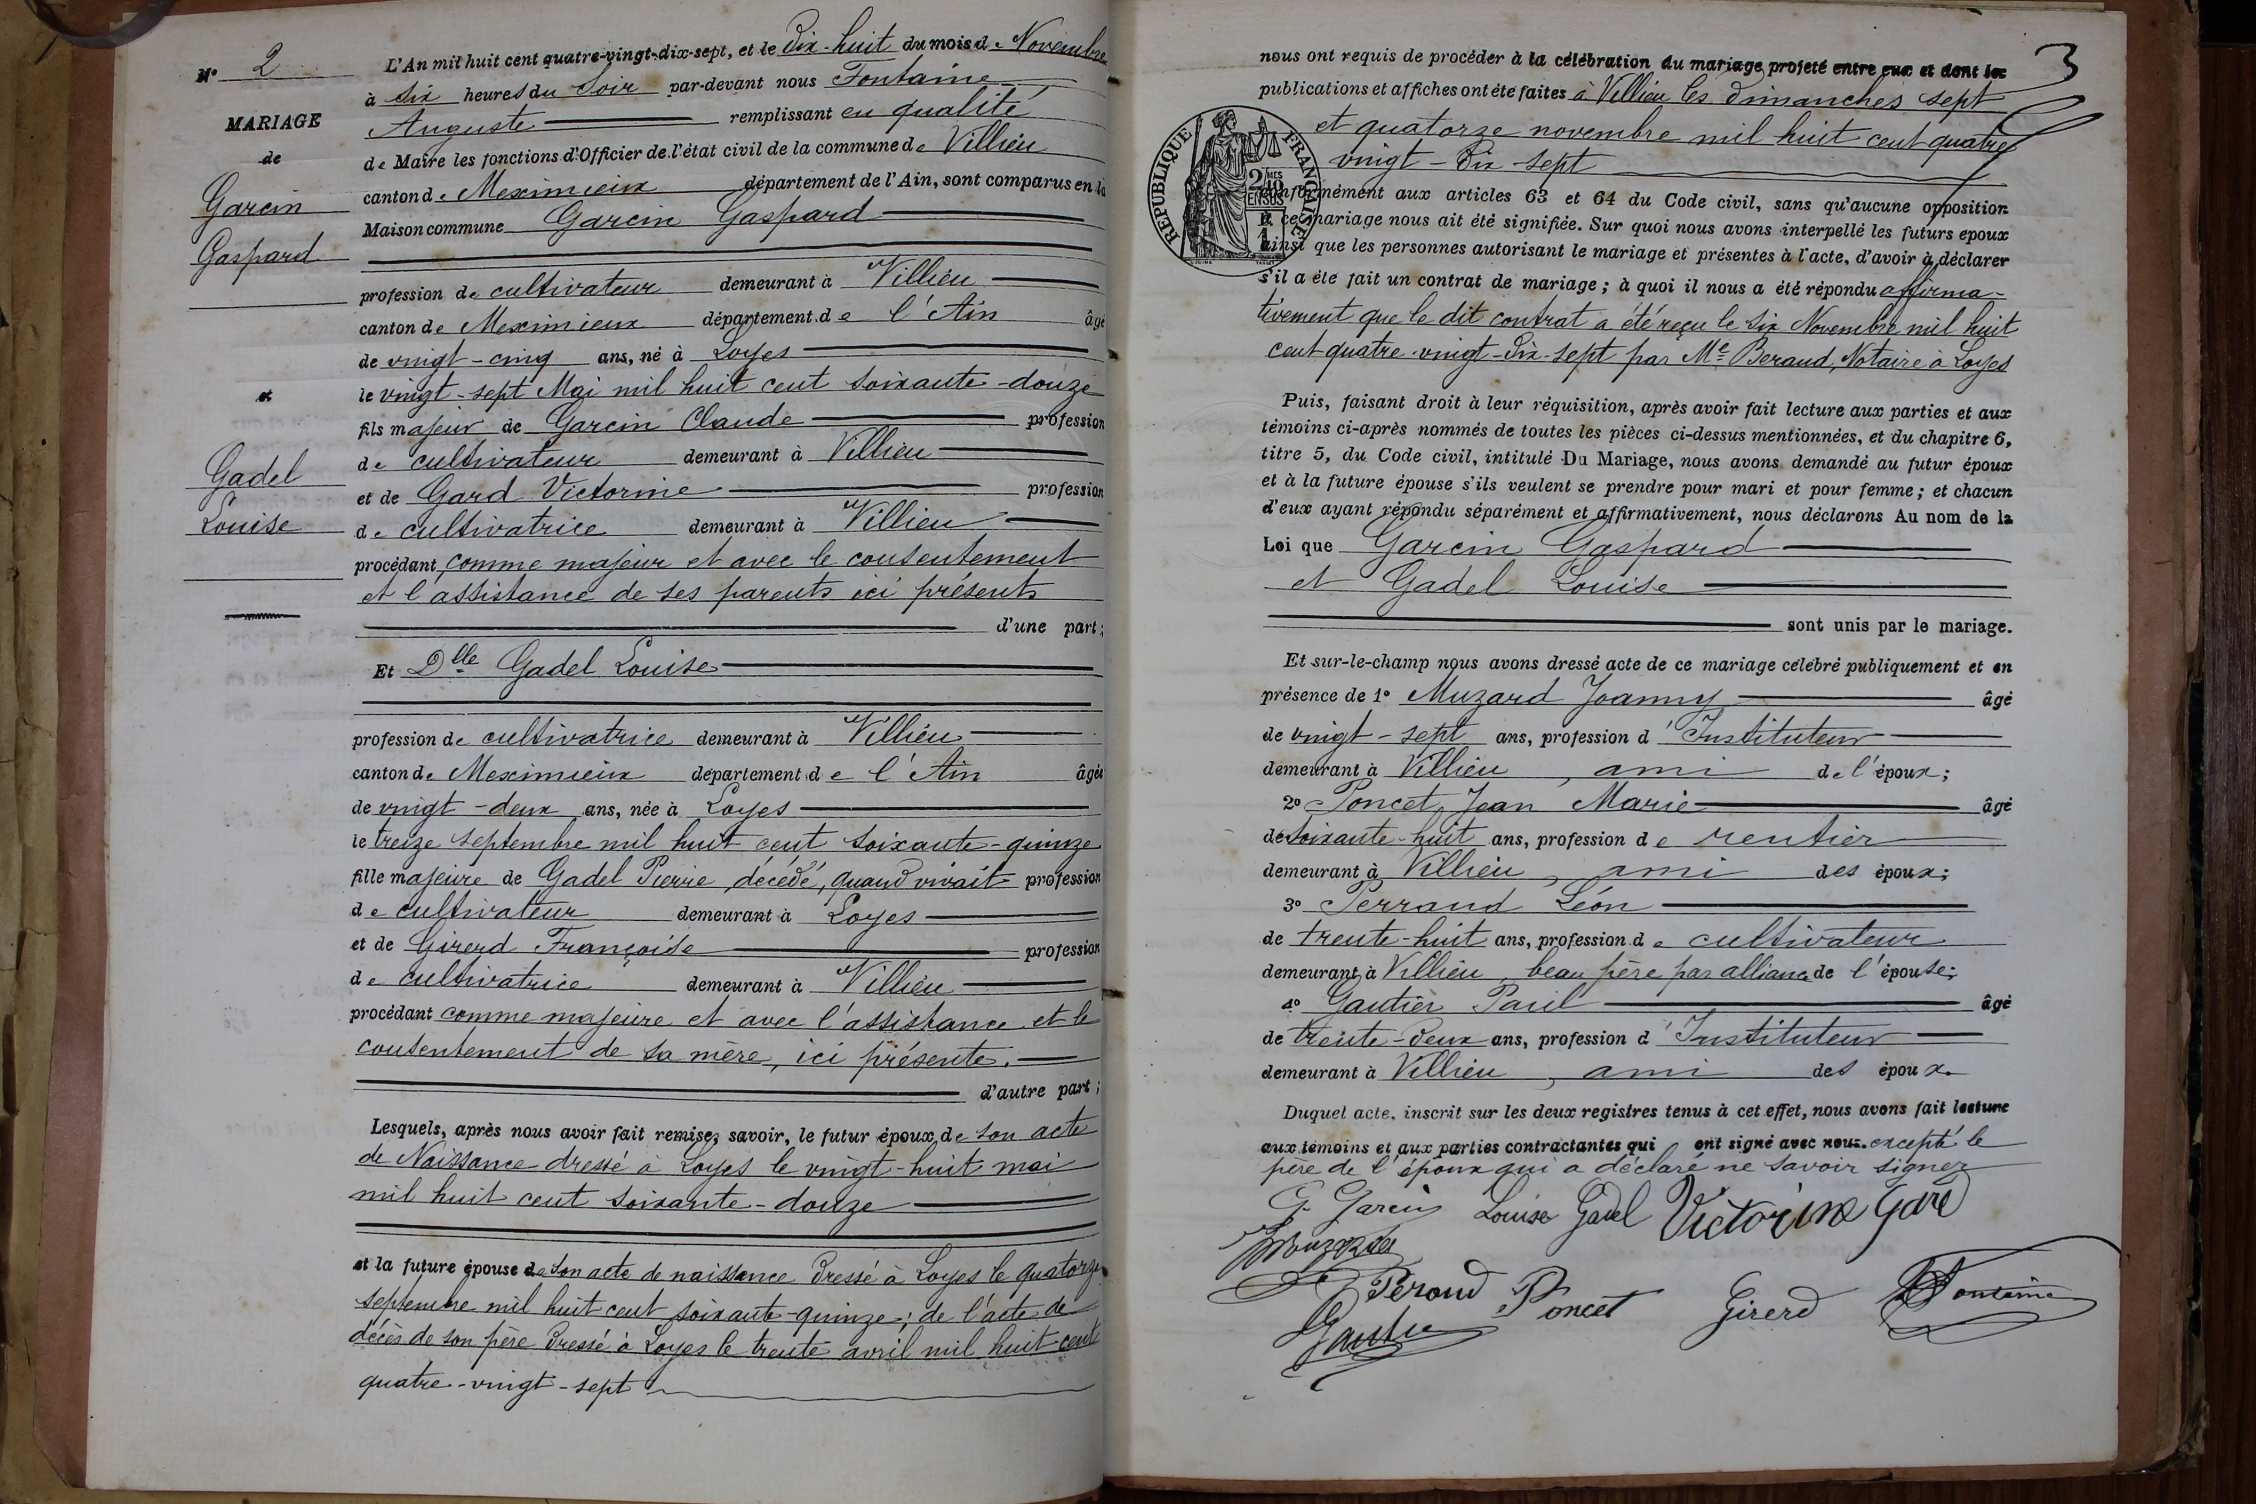 N° 2
MARIAGE
de
Garcin
Gaspard
et
Gadel
Louise
L'An mil huit cent quatre-vingt-dix-sept, et le dix-huit du mois de Novembre
à six heures du soir par-devant nous Fontaine
Auguste remplissant en qualité
de Maire les fonctions d'Officier de l'état civil de la commune de Villieu
canton de Meximieux département de l'Ain, sont comparus en la
Maison commune Garcin Gaspard
profession de cultivateur demeurant à Villieu
canton de Meximieux département de l'Ain âgé
de vingt-cinq ans, né à Loyes
le vingt-sept Mai mil huit cent soixante-douze
fils majeur de Garcin Claude profession
de cultivateur demeurant à Villieu
et de Gard Victorine profession
de cultivatrice demeurant à Villieu
procédant comme majeur et avec le consentement
et l'assistance de ses parents ici présents
d'une part;
Et Dlle Gadel Louise
profession de cultivatrice demeurant à Villieu
canton de Meximieux département de l'Ain âgée
de vingt-deux ans, née à Loyes
le treize septembre mil huit cent soixante-quinze
fille majeure de Gadel Pierre, décédé, quand vivait profession
de cultivateur demeurant à Loyes
et de Girerd Françoise profession
de cultivatrice demeurant à Villieu
procédant comme majeure et avec l'assistance et le
consentement de sa mère, ici présente.
d'autre part;
Lesquels, après nous avoir fait remise, savoir, le futur époux de son acte
de Naissance dressé à Loyes le vingt-huit mai
mil huit cent soixante-douze
et la future épouse de son acte de naissance dressé à Loyes le quatorze
septembre mil huit cent soixante-quinze; de l'acte de
décès de son père dressé à Loyes le trente avril mil huit cent
quatre-vingt-sept
3
nous ont requis de procéder à la célébration du mariage projeté entre eux et dont les
publications et affiches ont été faites à Villieu les dimanches sept
et quatorze novembre mil huit cent quatre
vingt-dix-sept
REPUBLIQUE FRANÇAISE
2 MES 10
EN SUS
conformément aux articles 63 et 64 du Code civil, sans qu'aucune opposition
à ce mariage nous ait été signifiée. Sur quoi nous avons interpellé les futurs époux
ainsi que les personnes autorisant le mariage et présentes à l'acte, d'avoir à déclarer
s'il a été fait un contrat de mariage; à quoi il nous a été répondu affirma-
tivement que le dit contrat a été reçu le six Novembre mil huit
cent quatre-vingt-dix-sept par Me Beraud, Notaire à Loyes
Puis, faisant droit à leur réquisition, après avoir fait lecture aux parties et aux
témoins ci-après nommés de toutes les pièces ci-dessus mentionnées, et du chapitre 6,
titre 5, du Code civil, intitulé Du Mariage, nous avons demandé au futur époux
et à la future épouse s'ils veulent se prendre pour mari et pour femme; et chacun
d'eux ayant répondu séparément et affirmativement, nous déclarons Au nom de la
Loi que Garcin Gaspard
et Gadel Louise
sont unis par le mariage.
Et sur-le-champ nous avons dressé acte de ce mariage célébré publiquement et en
présence de 1° Muzard Joanny âgé
de vingt-sept ans, profession d'Instituteur
demeurant à Villieu, ami de l'époux;
2° Poncet, Jean Marie âgé
de soixante-huit ans, profession de rentier
demeurant à Villieu, ami des époux;
3° Perraud Léon
de trente-huit ans, profession de cultivateur
demeurant à Villieu, beau père par alliance de l'épouse;
4° Gautier Paul âgé
de trente-deux ans, profession d'Instituteur
demeurant à Villieu, ami des époux.
Duquel acte, inscrit sur les deux registres tenus à cet effet, nous avons fait lecture
aux témoins et aux parties contractantes qui ont signé avec nous. excepté le
père de l'époux qui a déclaré ne savoir signer
G. Garcin Louise Gadel Victorine Gard
Muzard
Péroud Poncet Girerd Fontaine
Gautier